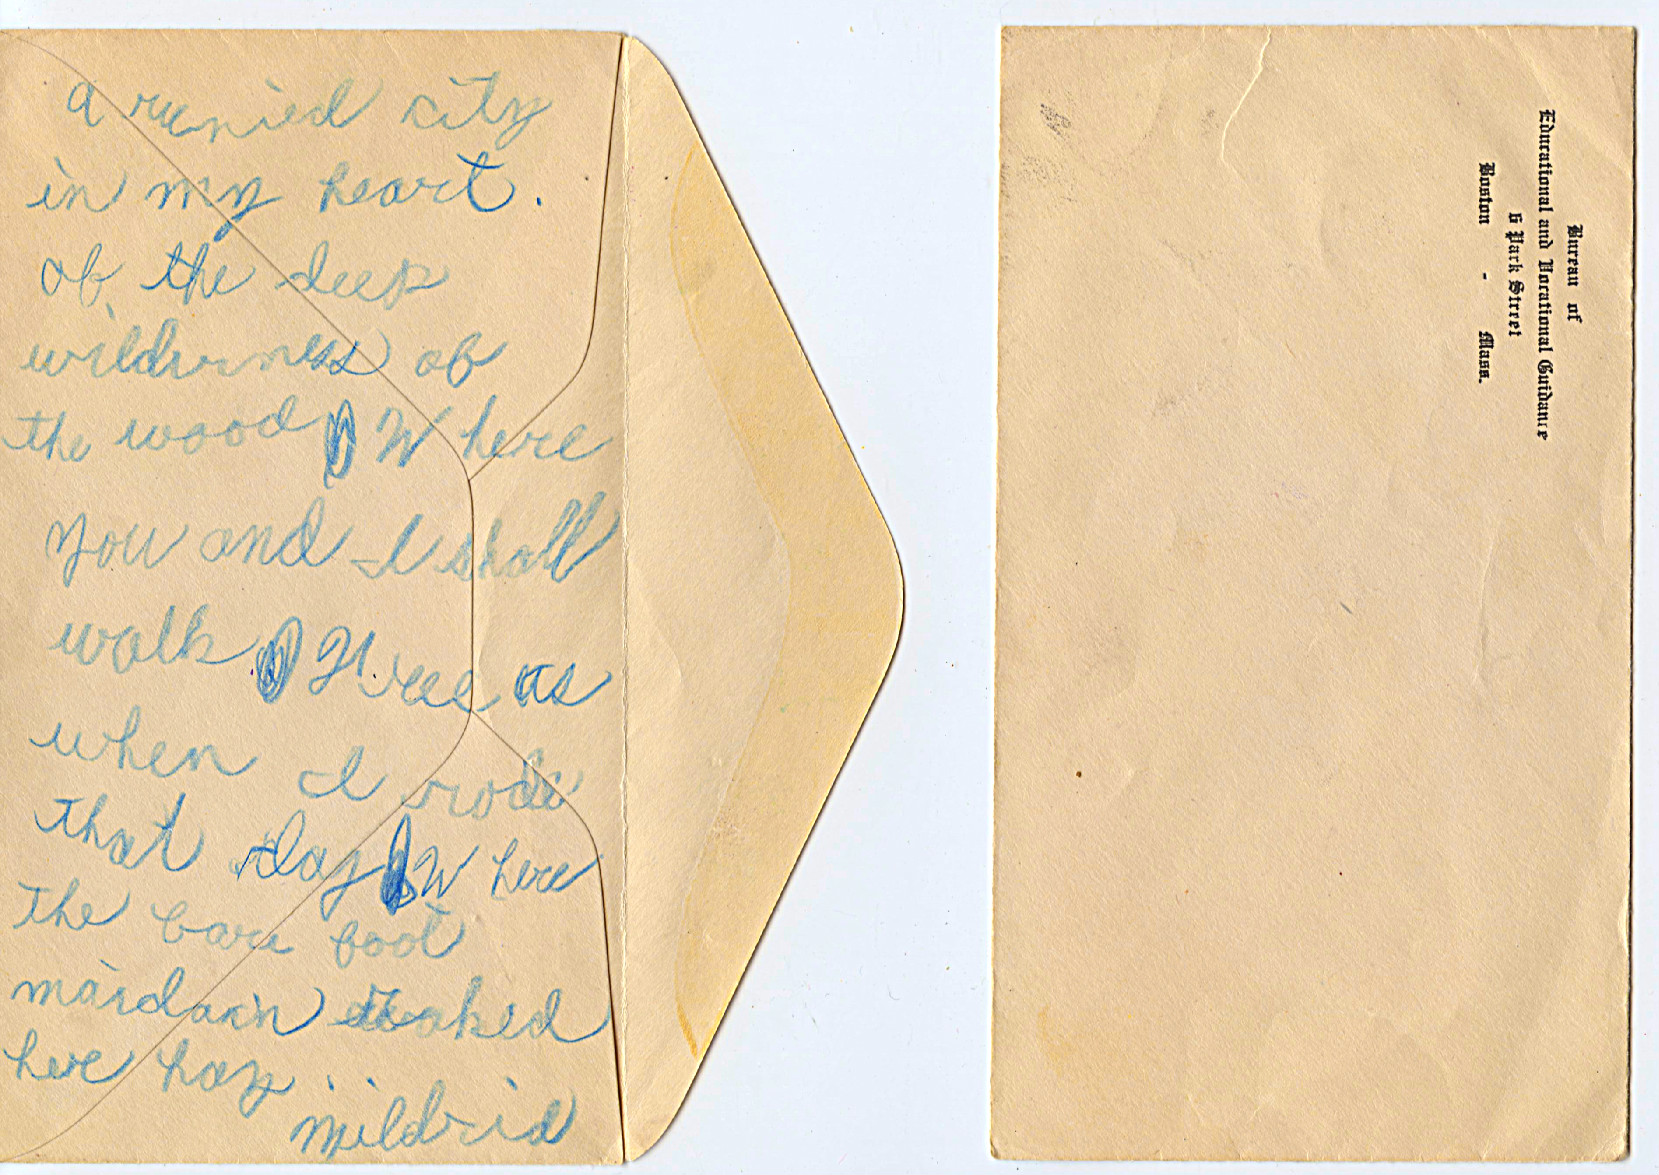 a ruenied city
in my heart.
of the deep
wilderness of
the wood Where
you and I shall
walk Free as
when I rode
that day Where
the bare foot
maidain raked
here hay.
Mildrid
Bureau of
Educational and Vocational Guidance
6 Park Street
Boston - Mass.